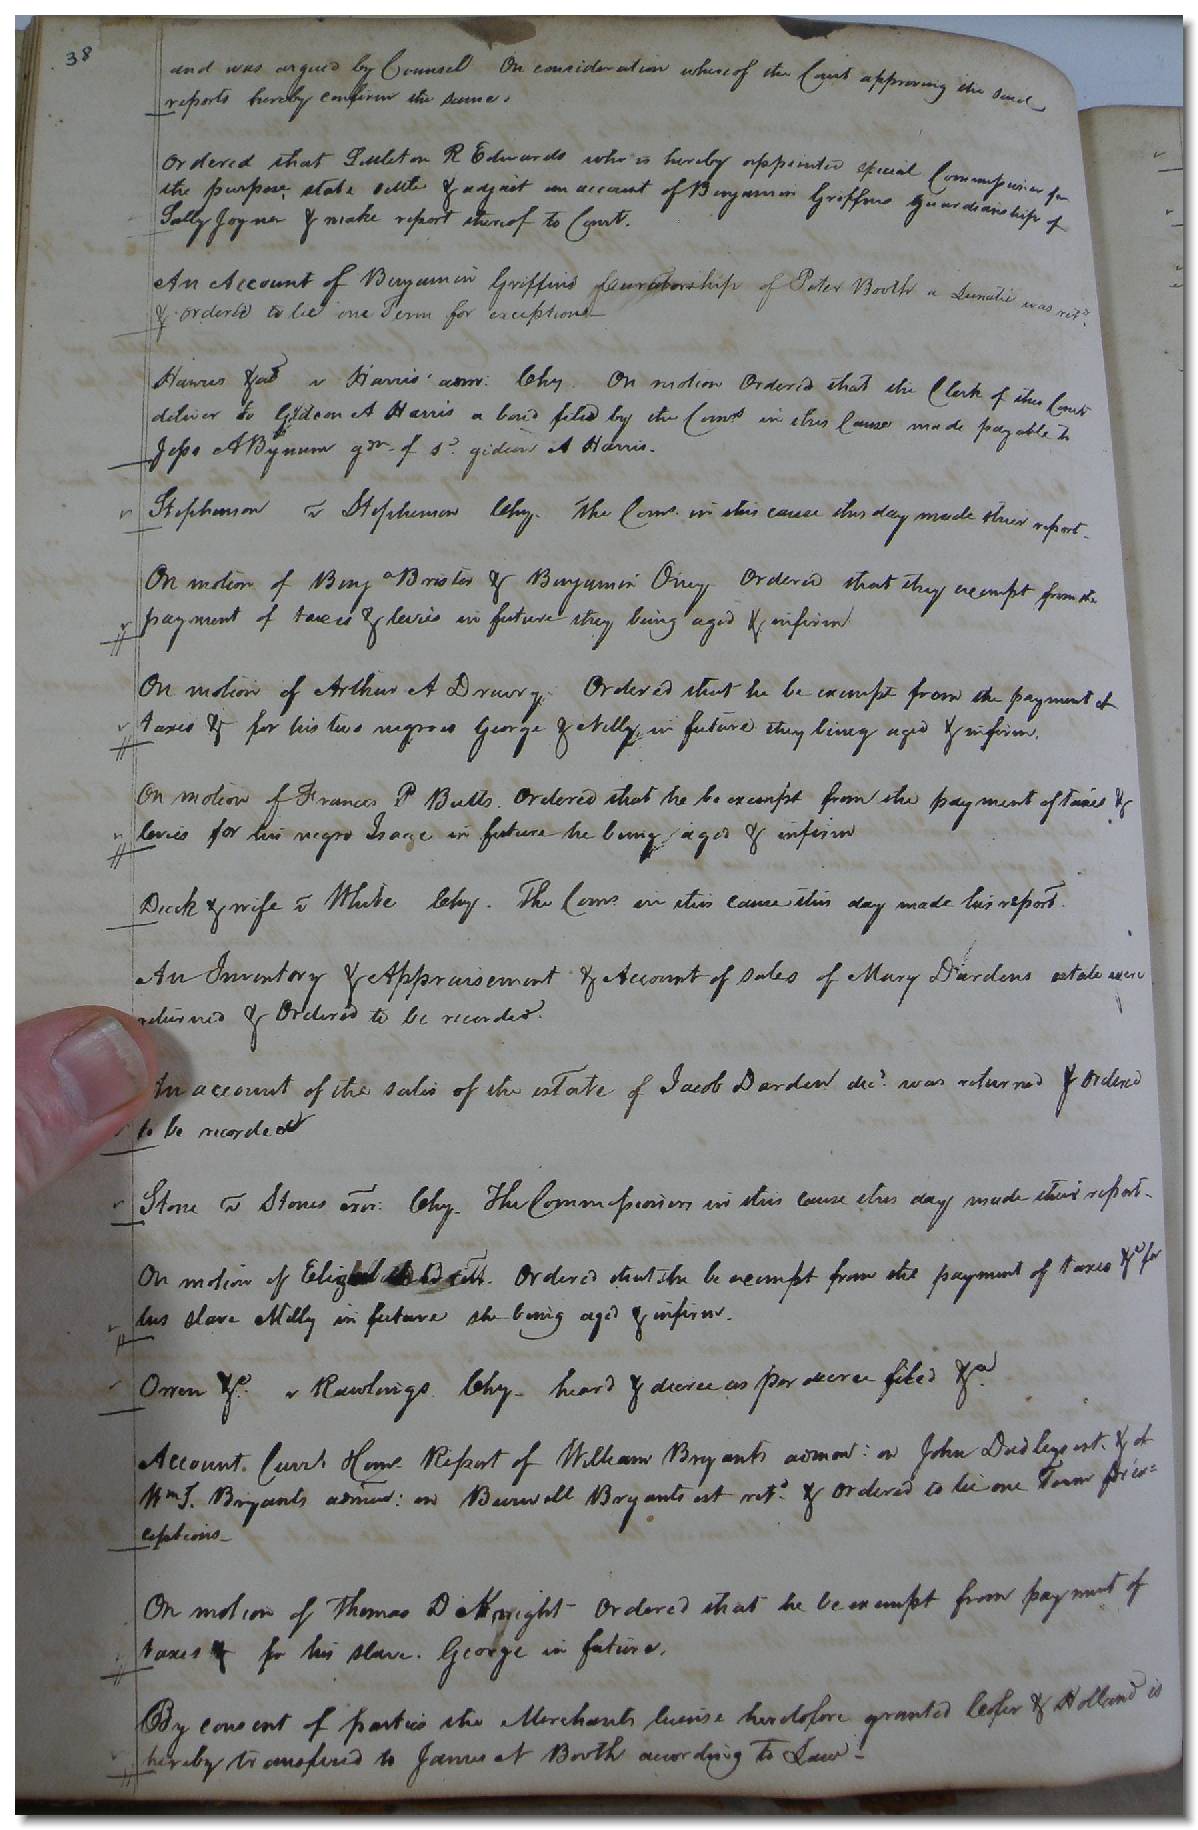 38
and was argued by Counsel On consideration whereof the Court approving the said
reports hereby confirm the same.
Ordered that Littleton R Edwards who is hereby appointed special Commissioner for
the purpose, state settle & adjust an account of Benjamin Griffins guardianship of
Sally Joyner & make report thereof to Court.
An Account of Benjamin Griffins Curatorship of Peter Booth a Lunatic was retd.
& ordered to lie one Term for exceptions
Harris &als v Harris' admr: Chy. On motion Ordered that the Clerk of this Court
deliver to Gideon A Harris a bond filed by the Comrs in this Cause made payable to
Jesse A Bynum gdn of sd. gideon A Harris.
Stephenson v Stephenson Chy. The Comrs. in this cause this day made their report.
On motion of Benja Brister & Benjamin Oney Ordered that they exempt from the
payment of taxes & levies in future they being aged & infirm
On motion of Arthur A Drewry. Ordered that he be exempt from the payment of
taxes & for his two negroes George & Nelly, in future they being aged & infirm.
On motion of Francis P Butts. Ordered that he be exempt from the payment of taxes &
levies for his negro Isaac in future he being aged & infirm
Duck & wife v White Chy. The Comr. in this cause this day made his report.
An Inventory & Appraisement & Account of sales of Mary Dardens estate were
returned & Ordered to be recorded.
An account of the sales of the estate of Jacob Darden decd. was returned & Ordered
to be recorded
Stone v Stones exor: Chy. The Commissioners in this cause this day made their report.
On motion of Ordered that she be exempt from the payment of taxes &c for
his slave Milly in future she being aged & infirm.
Orren &c. v Rawlings. Chy. heard & decree as per decree filed &c.
Account. Curt. Report of William Bryants admor: on John Dudleys est. & of
Wm J. Bryants admor: on Burwell Bryants est retd. & Ordered to lie one Term for ex=
ceptions.
On motion of Thomas D Knight Ordered that he be exempt from payment of
taxes & for his slave. George in future.
By consent of parties the Merchants license heretofore granted & Holland is
hereby transfered to James N Booth according to Law.